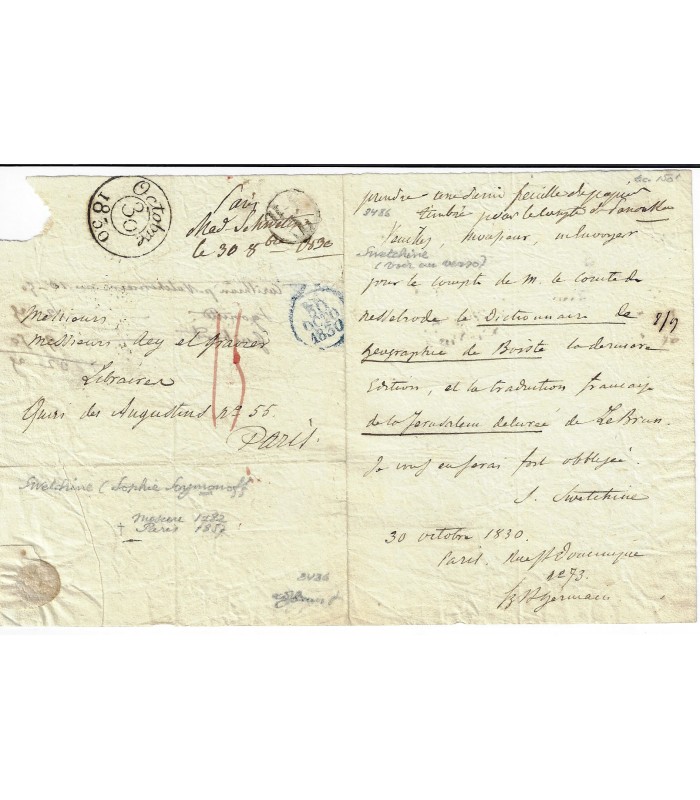 Octobre
30
1830
Paris
Med.
le 30 8bre 1830
30
1830
Messieurs,
Messieurs Rey et Gravier
Libraires
Quai des Augustins nº 55.
Paris.
15
Swetchine (Sophie Soymonoff
Moscou 1782
† Paris 1857
3486
prendre une demi feuille de papier
timbré pour le compte de
3486
Veuillez, Monsieur, m'envoyer
Swetchine
(voir au verso)
pour le compte de M. le Comte de
Nesselrode le Dictionnaire de
géographie de Boiste la dernière
Edition, et la traduction française
de la Jerusalem délivrée de LeBrun.
Je vous en serai fort obligée.
S. Swetchine
30 octobre 1830.
Paris. Rue St Dominique
nº 73.
St Germain